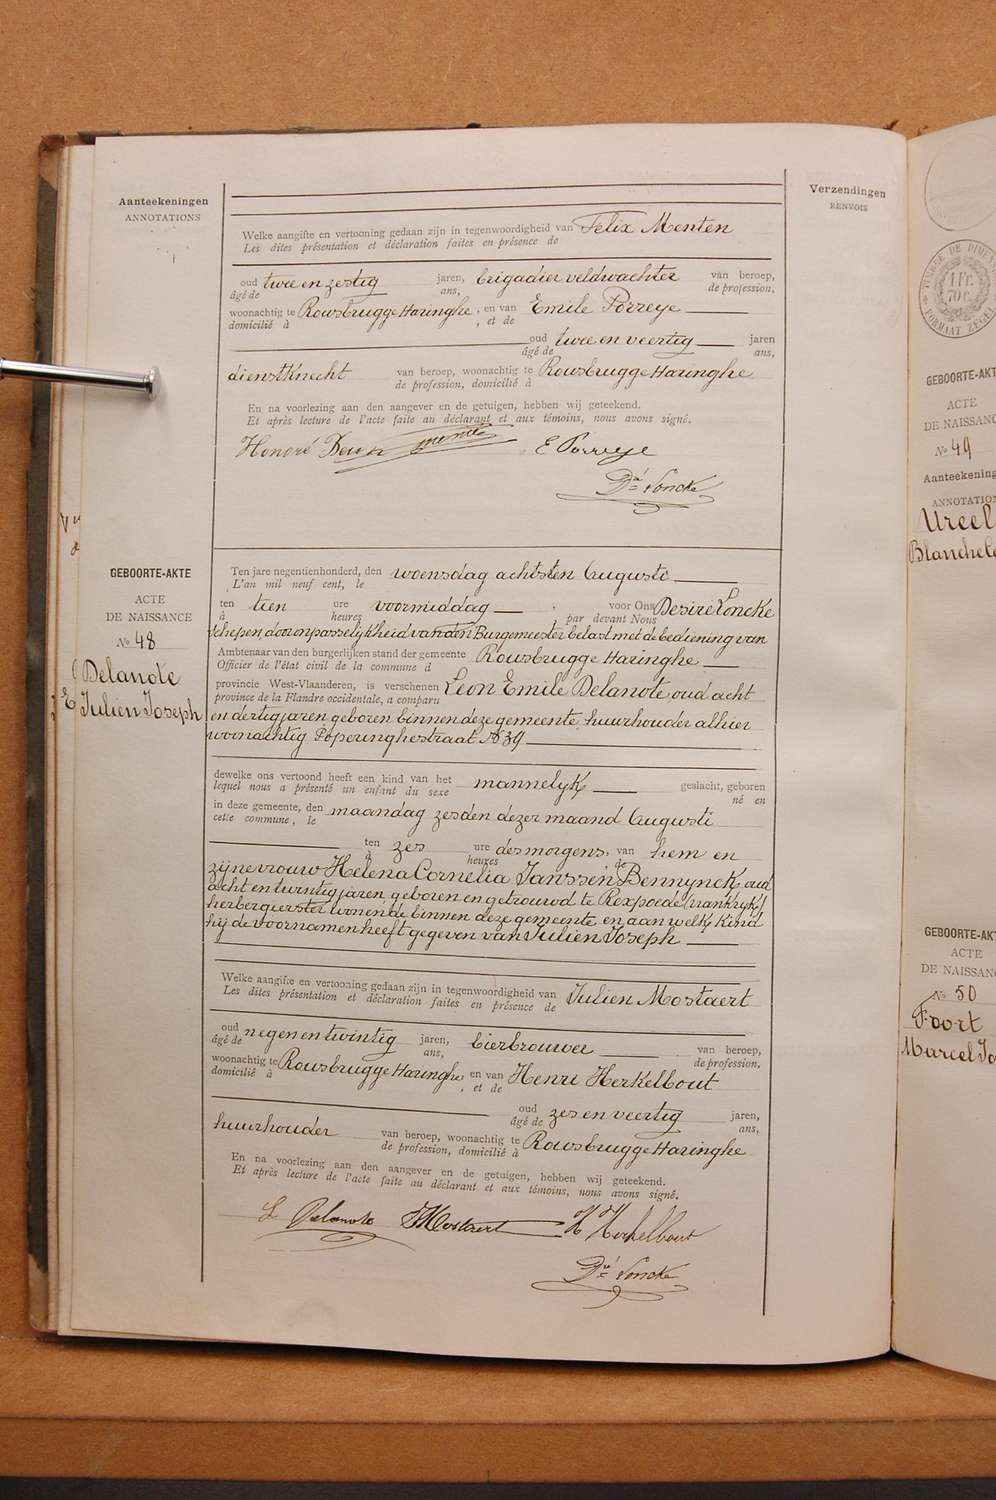 Aanteekeningen
ANNOTATIONS
Verzendingen
RENVOIS
Welke aangifte en vertooning gedaan zijn in tegenwoordigheid van Felix Menten
Les dites présentation et déclaration faites en présence de
oud twee en zestig jaren, brigadier veldwachter van beroep,
âgé de ans, de profession,
woonachtig te Rousbrugge Haringhe, en van Emile Porreye
domicilié à , et de
oud twee en veertig jaren
âgé de ans,
dienstknecht van beroep, woonachtig te Rousbrugge Haringhe
de profession, domicilié à
En na voorlezing aan den aangever en de getuigen, hebben wij geteekend.
Et après lecture de l'acte faite au déclarant et aux témoins, nous avons signé.
Honoré Menten E Porreye
Dré Loncke
GEBOORTE-AKTE
ACTE
DE NAISSANCE
No 48
Delanote
Julien Joseph
Ten jare negentienhonderd, den woensdag achtsten Augusti
L'an mil neuf cent, le
ten tien ure voormiddag voor Ons Desiré Loncke
à heures par devant Nous
schepen, door onpasselijkheid van den Burgemeester belast met de bediening van
Ambtenaar van den burgerlijken stand der gemeente Rousbrugge Haringhe
Officier de l'état civil de la commune d
provincie West-Vlaanderen, is verschenen Leon Emile Delanote, oud acht
province de la Flandre occidentale, a comparu
en dertig jaren geboren binnen deze gemeente, huurhouder alhier
woonachtig Poperinghestraat No 39
dewelke ons vertoond heeft een kind van het mannelyk geslacht, geboren
lequel nous a présenté un enfant du sexe né en
in deze gemeente, den maandag zesden dezer maand Augusti
cette commune, le
ten zes ure des morgens, van hem en
à heures de
zijne vrouw Helena Cornelia Janssen Bennynck, oud
acht en twintig jaren, geboren en getrouwd te Rexpoede (Frankryk)
herbergierster wonende binnen deze gemeente en aan welk kind
hij de voornamen heeft gegeven van Julien Joseph
Welke aangifte en vertooning gedaan zijn in tegenwoordigheid van Julien Mostaert
Les dites présentation et déclaration faites en présence de
oud negen en twintig jaren, bierbrouwer van beroep,
âgé de ans, de profession,
woonachtig te Rousbrugge Haringhe en van Henri Herkelbout
domicilié à , et de
oud zes en veertig jaren,
âgé de ans,
huurhouder van beroep, woonachtig te Rousbrugge Haringhe
de profession, domicilié à
En na voorlezing aan den aangever en de getuigen, hebben wij geteekend.
Et après lecture de l'acte faite au déclarant et aux témoins, nous avons signé.
L Delanote J Mostaert H Herkelbout
Dré Loncke
TIMBRE DE DIMEN
1 Fr.
70 c.
FORMAAT ZEGEL
GEBOORTE-AKT
ACTE
DE NAISSANC
No 49
Aanteekening
ANNOTATION
Ureel
GEBOORTE-AKT
ACTE
DE NAISSANC
No 50
Foort
Marcel Jo